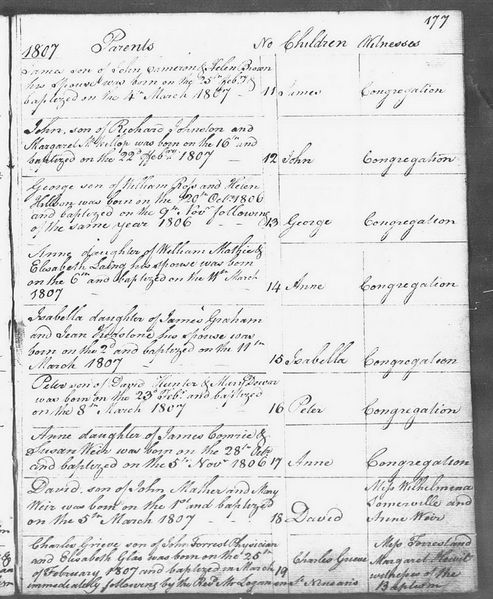 177
1807 Parents No Children Witnesses
James son of John Cameron & Helen Brown
his spouse was born on the 25th Feby &
baptized on the 4th March 1807 - 11 James Congregation
John, son of Richard Johnston and
Margaret was born on the 16th and
baptized on the 22d Feby 1807 - 12 John Congregation
George son of William Ross and Helen
was born on the 20th Octr 1806
and baptized on the 9th Novr following
of the same year 1806 - 13 George Congregation
Anne daughter of William Mathie &
Elisabeth Laing his spouse was born
on the 6th and baptized on the 11th March
1807 - 14 Anne Congregation
Isabella daughter of James Graham
and Jean his spouse was
born on the 2d and baptized on the 11th
March 1807 - 15 Isabella Congregation
Peter son of David Hunter & Mary
was born on the 23 Feby and baptized
on the 8th March 1807 16 Peter Congregation
Anne daughter of James &
Susan Weir was born on the 28th Octr
and baptized on the 5th Novr 1806 17 Anne Congregation
David, son of John Mather and Mary
Weir was born on the 1st and baptized
on the 5th March 1807 - 18 David
Miss Wilhelmena
Somerville and
Anne Weir
Charles Grieve son of John Forrest Physician
and Elisabeth Glas was born on the 25th
of February 1807 and baptized in March 19 Charles Grieve
immediately following by the Revd Mr Logan in St Ninians
Miss Forrest and
Margaret
witnesses of the
Baptism